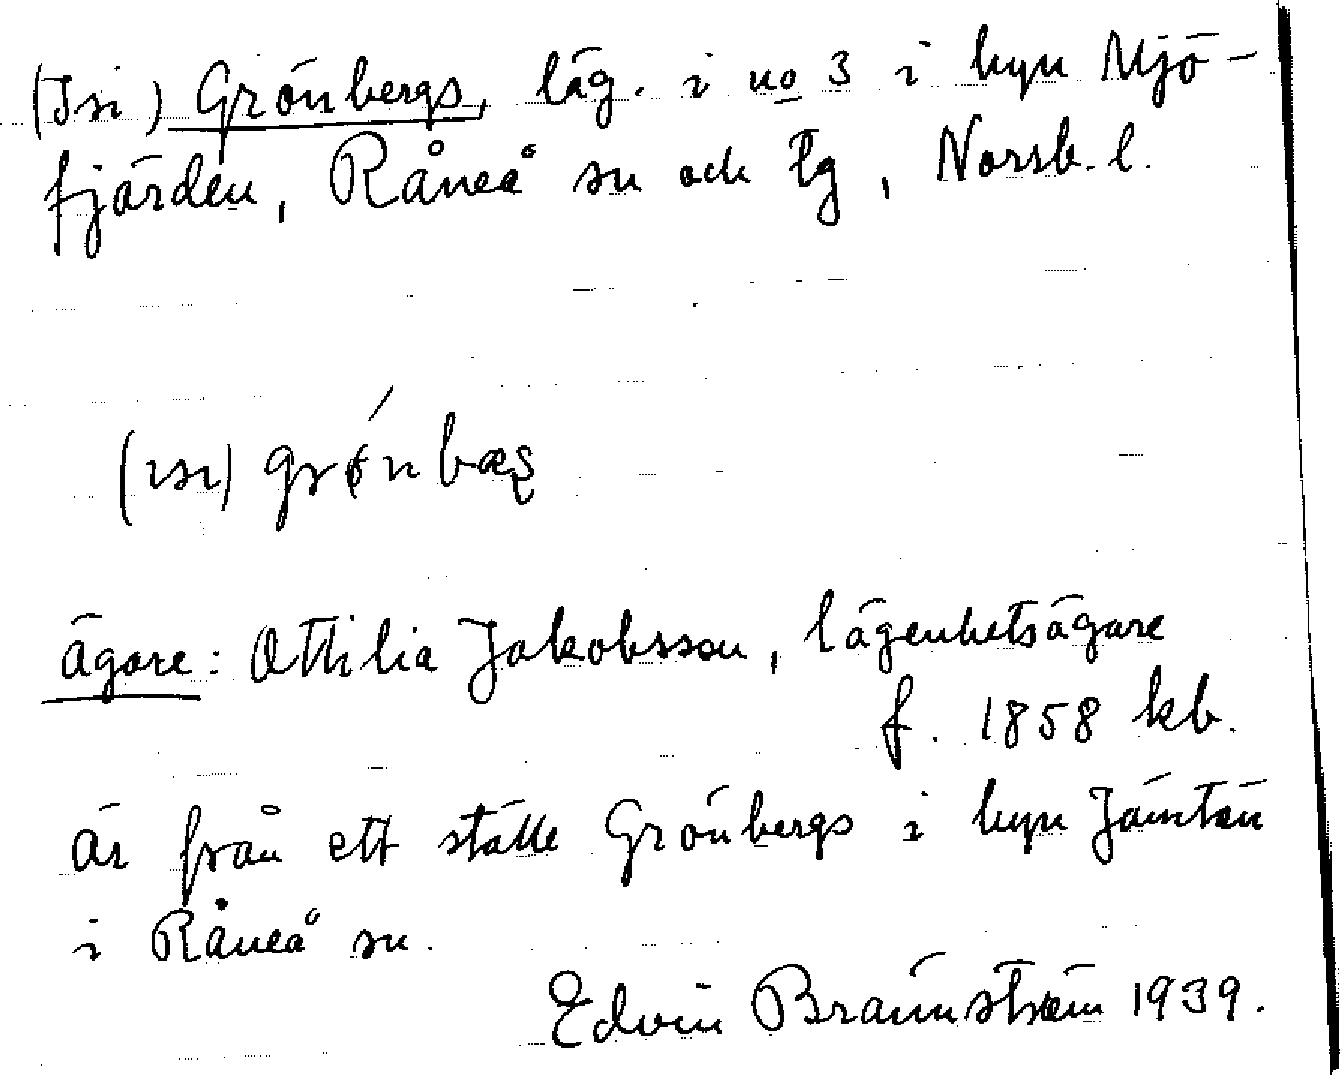 (Isi) Grönbergs, läg. i no 3 i byn Mjö-
fjärden, Råneå sn och tg, Norrb. l.
(ısı) grǿnbæş
ägare: Ottilia Jakobsson, lägenhetsägare
f. 1858 kb.
är från ett ställe Grönbergs i byn Jämtön
i Råneå sn.
Edvin Brännström 1939.